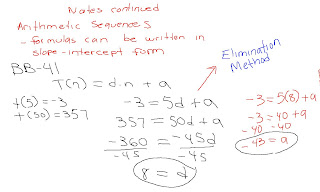 Notes continued
Arithmetic Sequences
- formulas can be written in
slope-intercept form
BB-41
T(n) = d·n + a
t(5) = -3
t(50) = 357
-3 = 5d + a
357 = 50d + a
-360 = -45d
-45 -45
8 = d
Elimination
Method
-3 = 5(8) + a
-3 = 40 + a
-40 -40
-43 = a